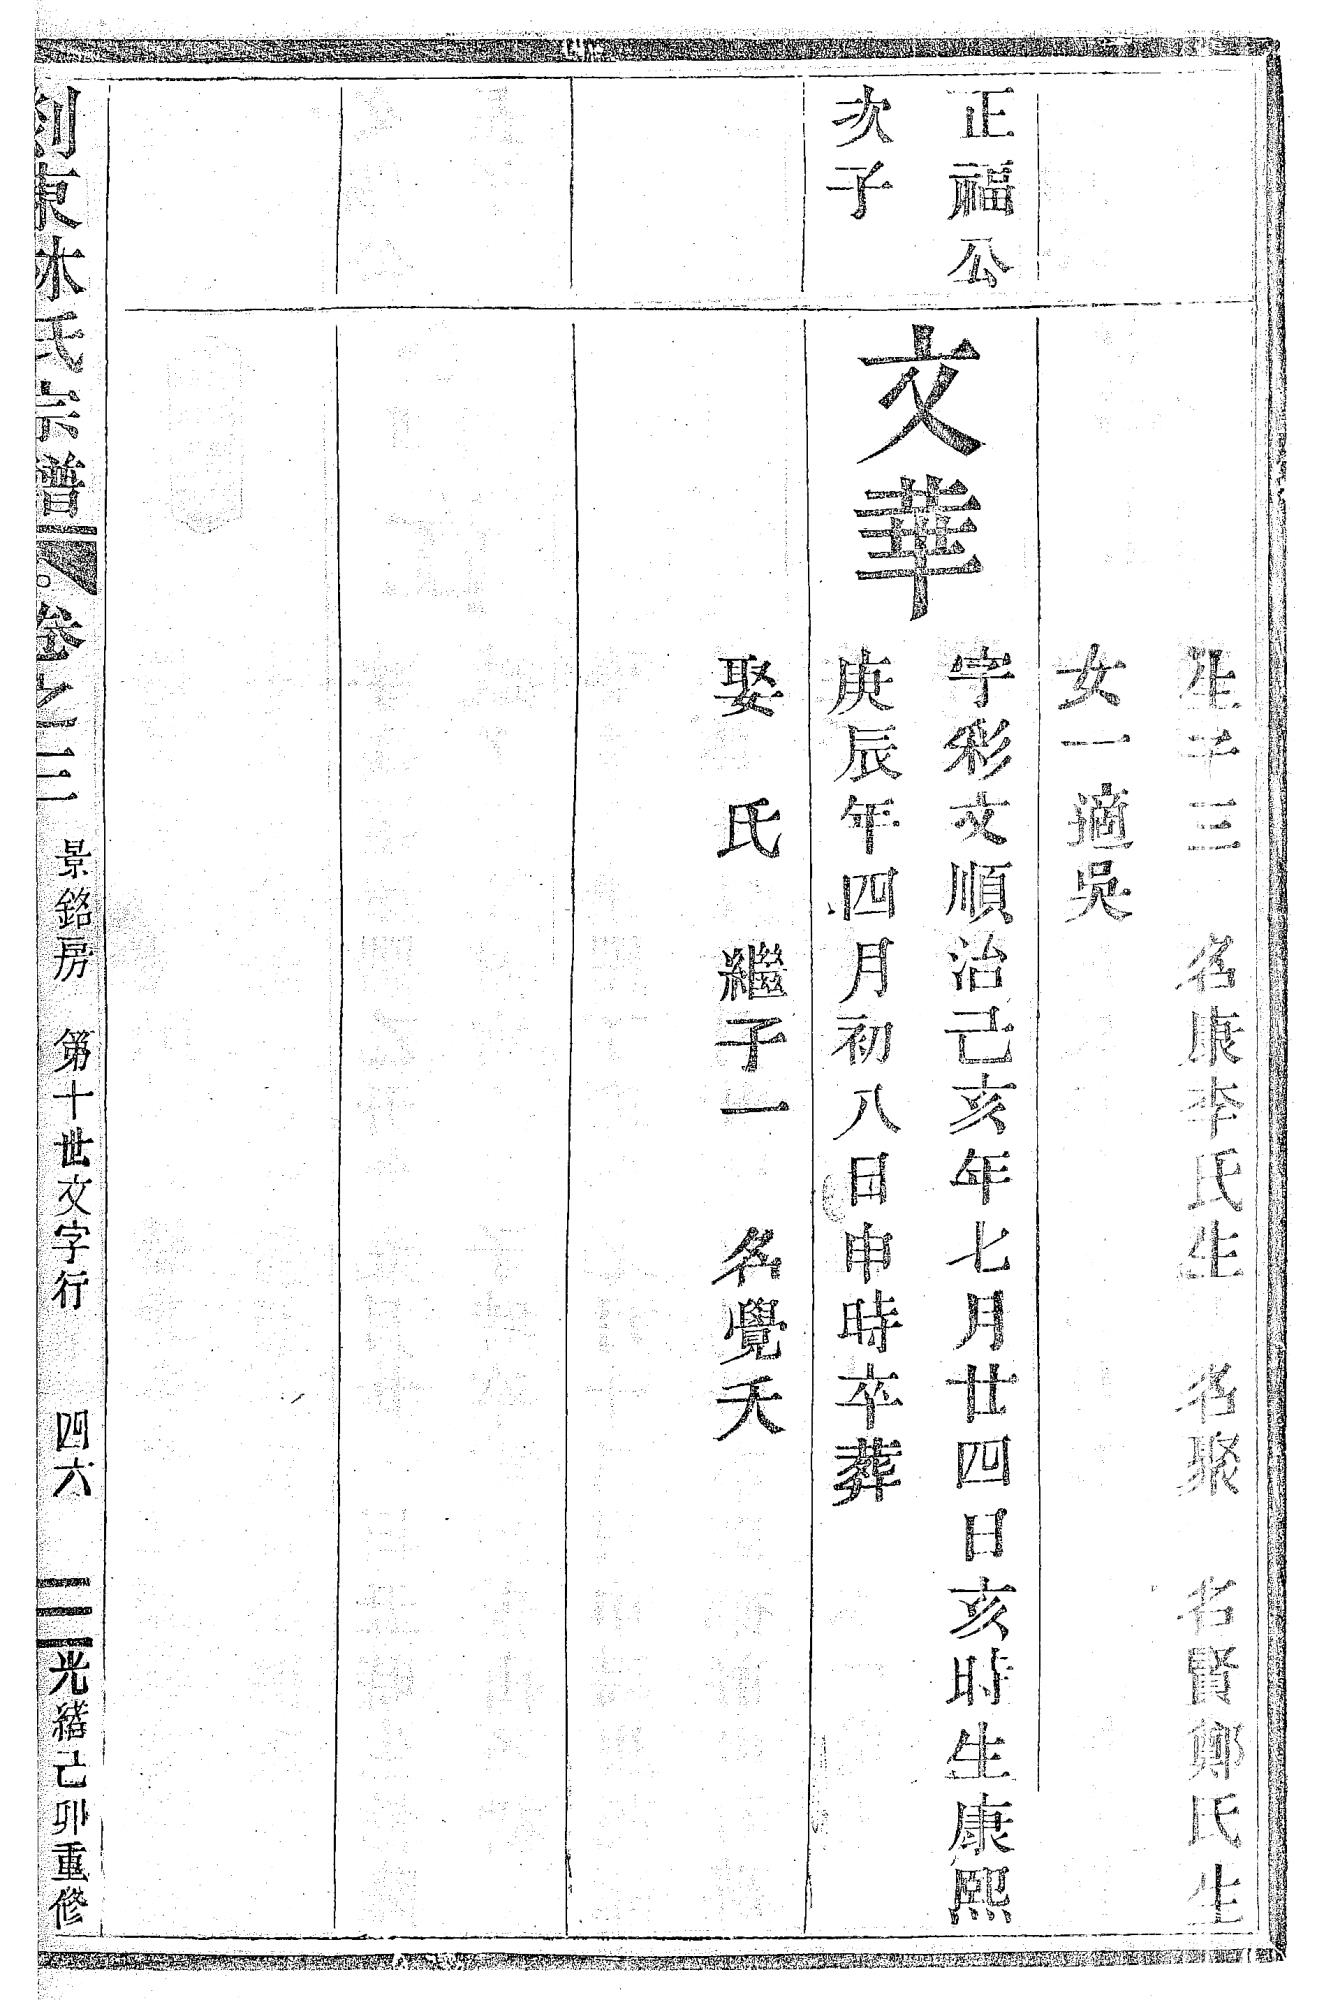 生子三　名康李氏生　名聚　名賢鄭氏生
女一適吳
正福公
次子
文華
字彩文順治己亥年七月廿四日亥時生康熙
庚辰年四月初八日申時卒葬
娶　氏　繼子一　名覺夭
剡東　氏宗譜
卷之三
景銘房　第十世文字行　四六
光緒己卯重修